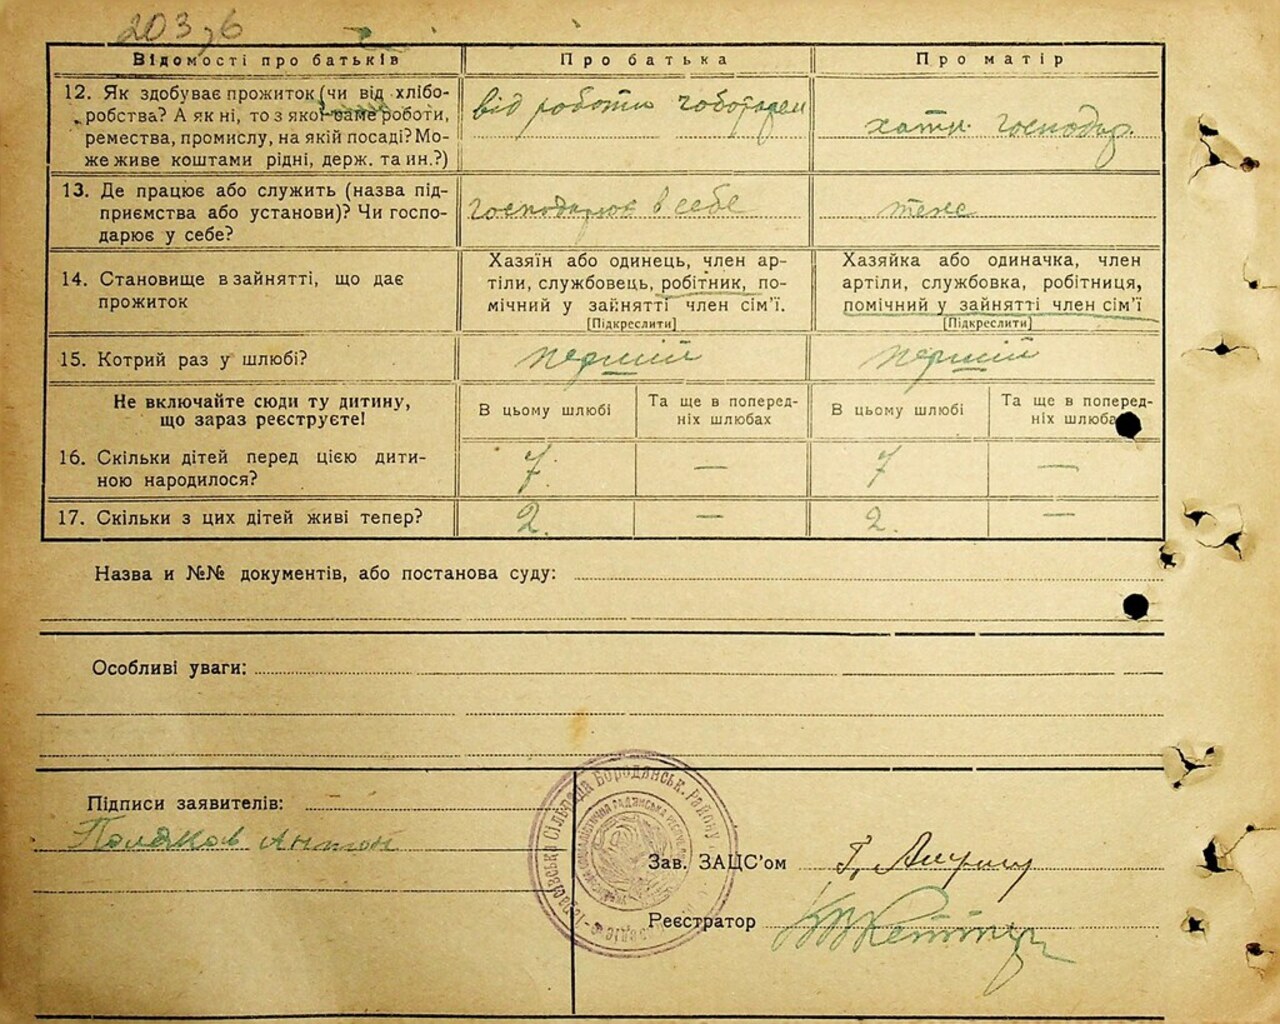 203,6
Відомості про батьків
Про батька
Про матір
12. Як здобуває прожиток (чи від хлібо-
робства? А як ні, то з якої саме роботи,
ремества, промислу, на якій посаді? Мо-
же живе коштами рідні, держ. та ин.?)
від роботи чоботарем
хатн. господар.
13. Де працює або служить (назва під-
приємства або установи)? Чи госпо-
дарює у себе?
господарює в себе
теже
14. Становище в зайнятті, що дає
прожиток
Хазяїн або одинець, член ар-
тіли, службовець, робітник, по-
мічний у зайнятті член сім'ї.
[Підкреслити]
Хазяйка або одиначка, член
артіли, службовка, робітниця,
помічний у зайнятті член сім'ї
[Підкреслити]
15. Котрий раз у шлюбі?
перший
перший
Не включайте сюди ту дитину,
що зараз реєструєте!
В цьому шлюбі
Та ще в поперед-
ніх шлюбах
В цьому шлюбі
Та ще в поперед-
ніх шлюбах
16. Скільки дітей перед цією дити-
ною народилося?
7.
—
7
—
17. Скільки з цих дітей живі тепер?
2.
—
2.
—
Назва и №№ документів, або постанова суду:
Особливі уваги:
Підписи заявителів:
Поляков Антон
Сільрада Бородянськ. району
Зав. ЗАЦС'ом
Реєстратор